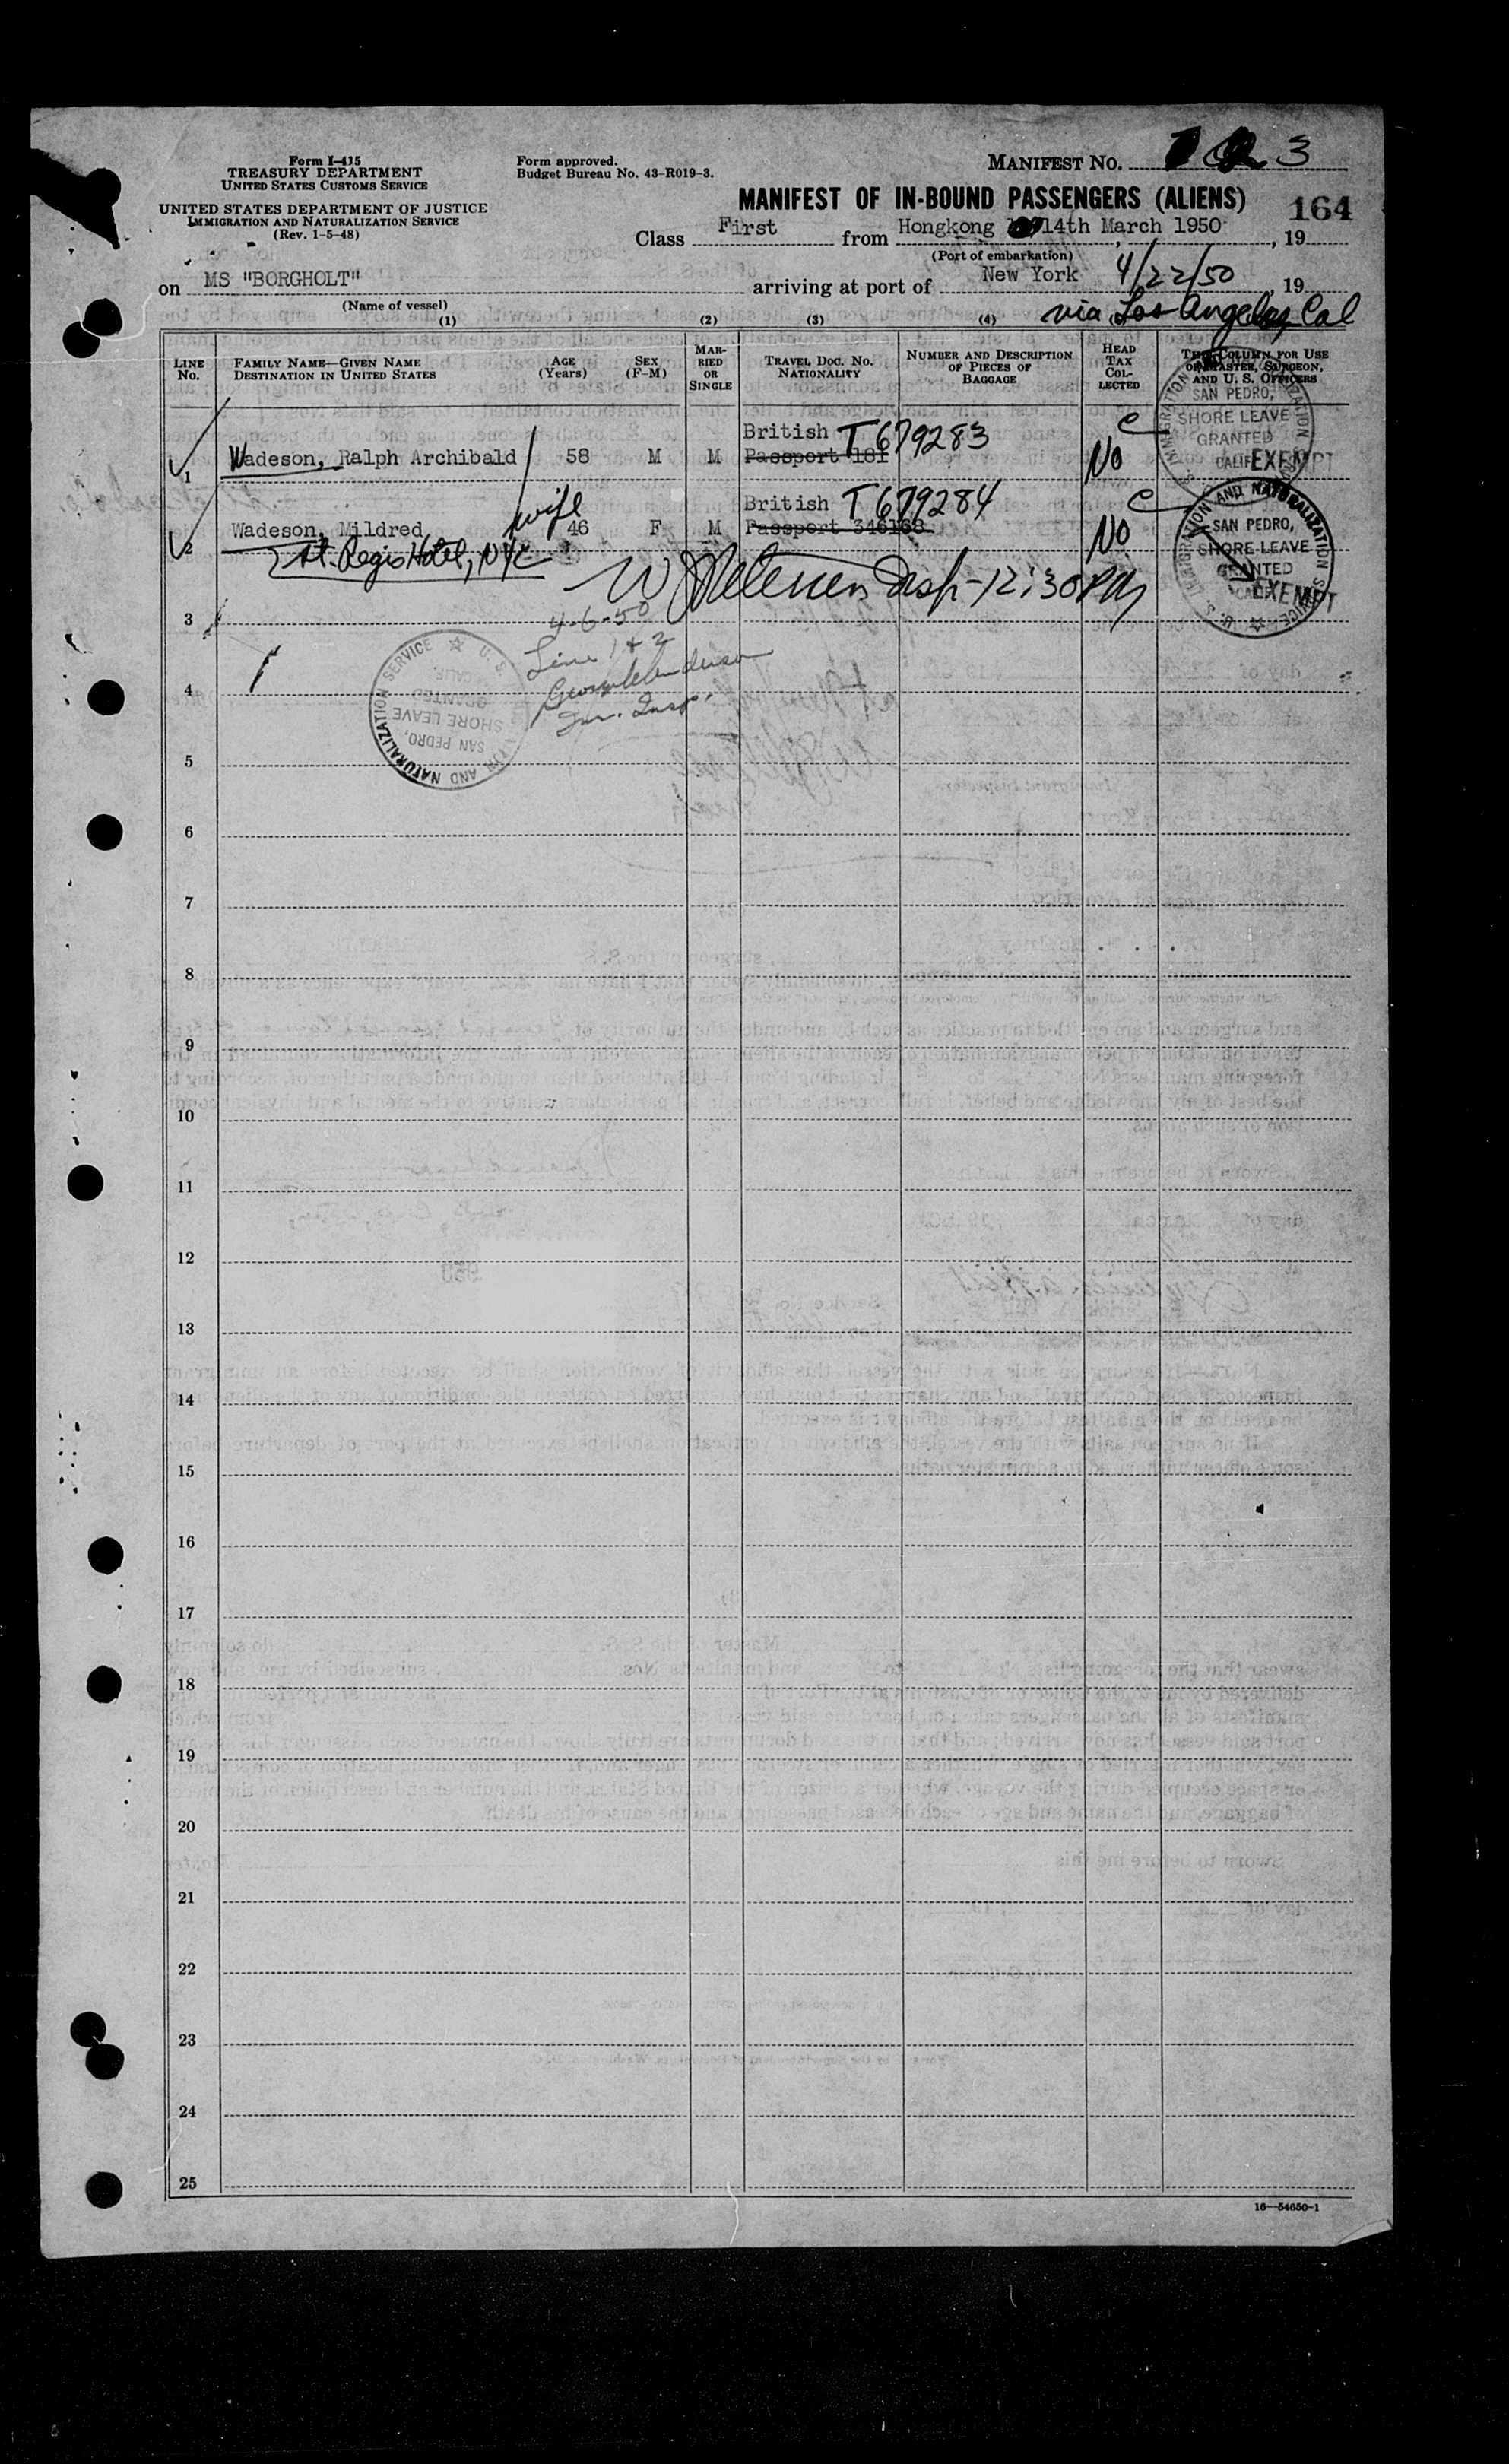 Form I-415
TREASURY DEPARTMENT
UNITED STATES CUSTOMS SERVICE
UNITED STATES DEPARTMENT OF JUSTICE
IMMIGRATION AND NATURALIZATION SERVICE
(Rev. 1-5-48)
Form approved.
Budget Bureau No. 43-R019-3.
MANIFEST NO. 3
MANIFEST OF IN-BOUND PASSENGERS (ALIENS)
164
Class First from Hongkong 14th March 1950, 19
(Port of embarkation)
on MS "BORGHOLT" arriving at port of New York 4/22/50, 19
(Name of vessel)
via Los Angeles, Cal
(1) (2) (3) (4)
LINE No.
FAMILY NAME—GIVEN NAME
DESTINATION IN UNITED STATES
AGE (Years)
SEX (F-M)
MARRIED OR SINGLE
TRAVEL DOC. NO.
NATIONALITY
NUMBER AND DESCRIPTION OF PIECES OF BAGGAGE
HEAD TAX COLLECTED
THIS COLUMN FOR USE OF MASTER, SURGEON, AND U. S. OFFICERS
1 Wadeson, Ralph Archibald 58 M M British T679283 Passport 181 No
SAN PEDRO,
SHORE LEAVE
GRANTED
CALIF
EXEMPT
2 Wadeson, Mildred wife 46 F M British T679284 Passport 346168 No
IMMIGRATION AND NATURALIZATION SERVICE U. S.
SAN PEDRO,
SHORE LEAVE
GRANTED
CALIF
EXEMPT
St. Regis Hotel, NYC
Disp-12:30 PM
3
4-6-50
Line 1 & 2
4
U. S. IMMIGRATION AND NATURALIZATION SERVICE
SAN PEDRO,
SHORE LEAVE
GRANTED
CALIF.
5
6
7
8
9
10
11
12
13
14
15
16
17
18
19
20
21
22
23
24
25
16—54650-1